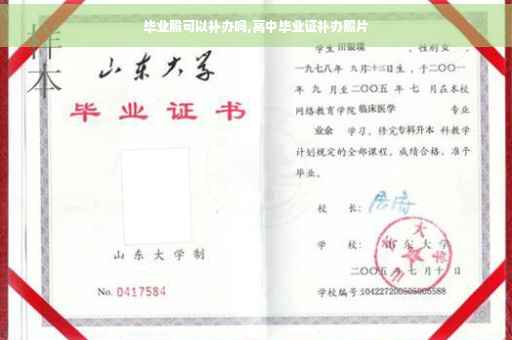 毕业照可以补办吗,高中毕业证补办照片
样本
山东大学
毕业证书
山东大学制
No. 0417584
学生 田银瑞 ,性别 女 ,
一九七八年 九月十三日生,于二〇〇二
年 九 月至二〇〇五 年 七 月在本校
网络教育学院 临床医学 专业
业余 学习,修完 专科升本 科教学
计划规定的全部课程,成绩合格,准予
毕业。
校 长:
学 校: 山东大学
二〇〇五 年 七 月 十 日
学校编号:104227200505005588